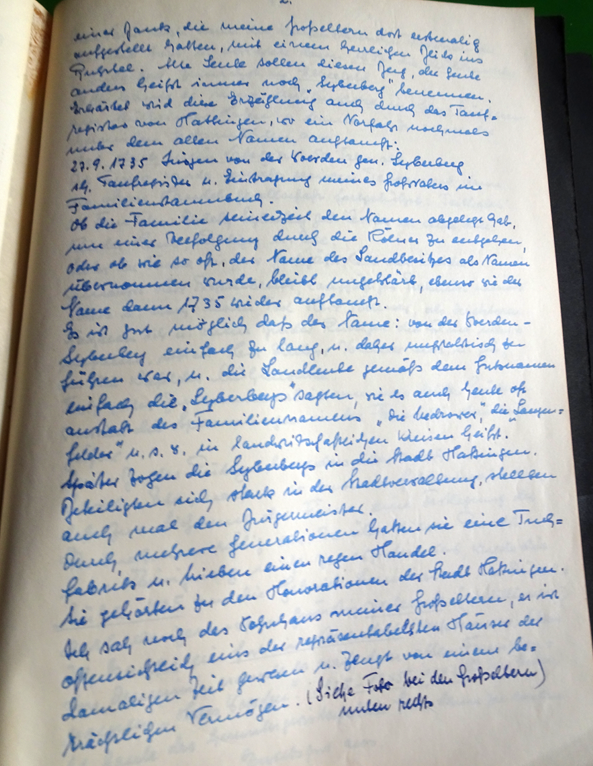 einer Bank, die meine Großeltern dort erstmalig
aufgestellt hatten, mit einem herrlichen Blick ins
Ruhrtal. Alte Leute sollen diesen Berg, der heute
anders heißt immer noch „Syberberg" benennen.
Erhärtet wird diese Erzählung auch durch das Tauf-
register von Hattingen, wo ein Vorfahr nochmals
unter dem alten Namen auftaucht:
27.9.1735 von der Woerden gen. Syberberg
Taufregister u. Eintragung meines Großvaters im
Familienstammbuch.
Ob die Familie seinerzeit den Namen abgelegt hat,
um einer Verfolgung durch die Kölner zu entgehen,
oder ob wie so oft, der Name des Landbesitzes als Namen
übernommen wurde, bleibt ungeklärt, ebenso wie der
Name dann 1735 wieder auftaucht.
Es ist gut möglich daß der Name: von der Woerden-
Syberberg einfach zu lang, u. daher unpraktisch zu
führen war, u. die Landleute gemäß dem Gutsnamen
einfach die „Syberbergs" sagten, wie es auch heute oft
anstatt des Familiennamens „die", die Langen-
felder" u.s.w. in landwirtschaftlichen Kreisen heißt.
Später zogen die Syberbergs in die Stadt Hattingen.
Beteiligten sich stark in der Stadtverwaltung, stellten
auch mal den Bürgermeister.
Durch mehrere Generationen hatten sie eine Tuch=
fabrik u. trieben einen regen Handel.
Sie gehörten zu den Honorationen der Stadt Hattingen.
Ich sah noch das Wohnhaus meiner Großeltern, es ist
offensichtlich eins der repräsentabelsten Häuser der
damaligen Zeit gewesen u. zeugt von einem be=
trächtlichen Vermögen. (Siehe Foto bei den Großeltern)
unten rechts